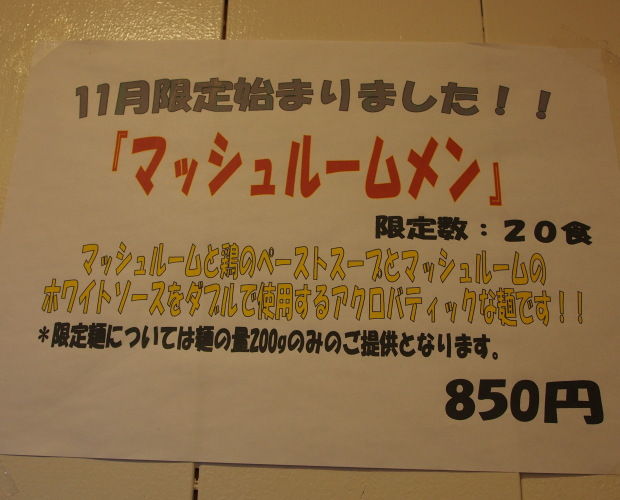 11月限定始まりました！！
『マッシュルームメン』
限定数：２０食
マッシュルームと鶏のペーストスープとマッシュルームの
ホワイトソースをダブルで使用するアクロバティックな麺です！！
＊限定麺については麺の量200gのみのご提供となります。
850円